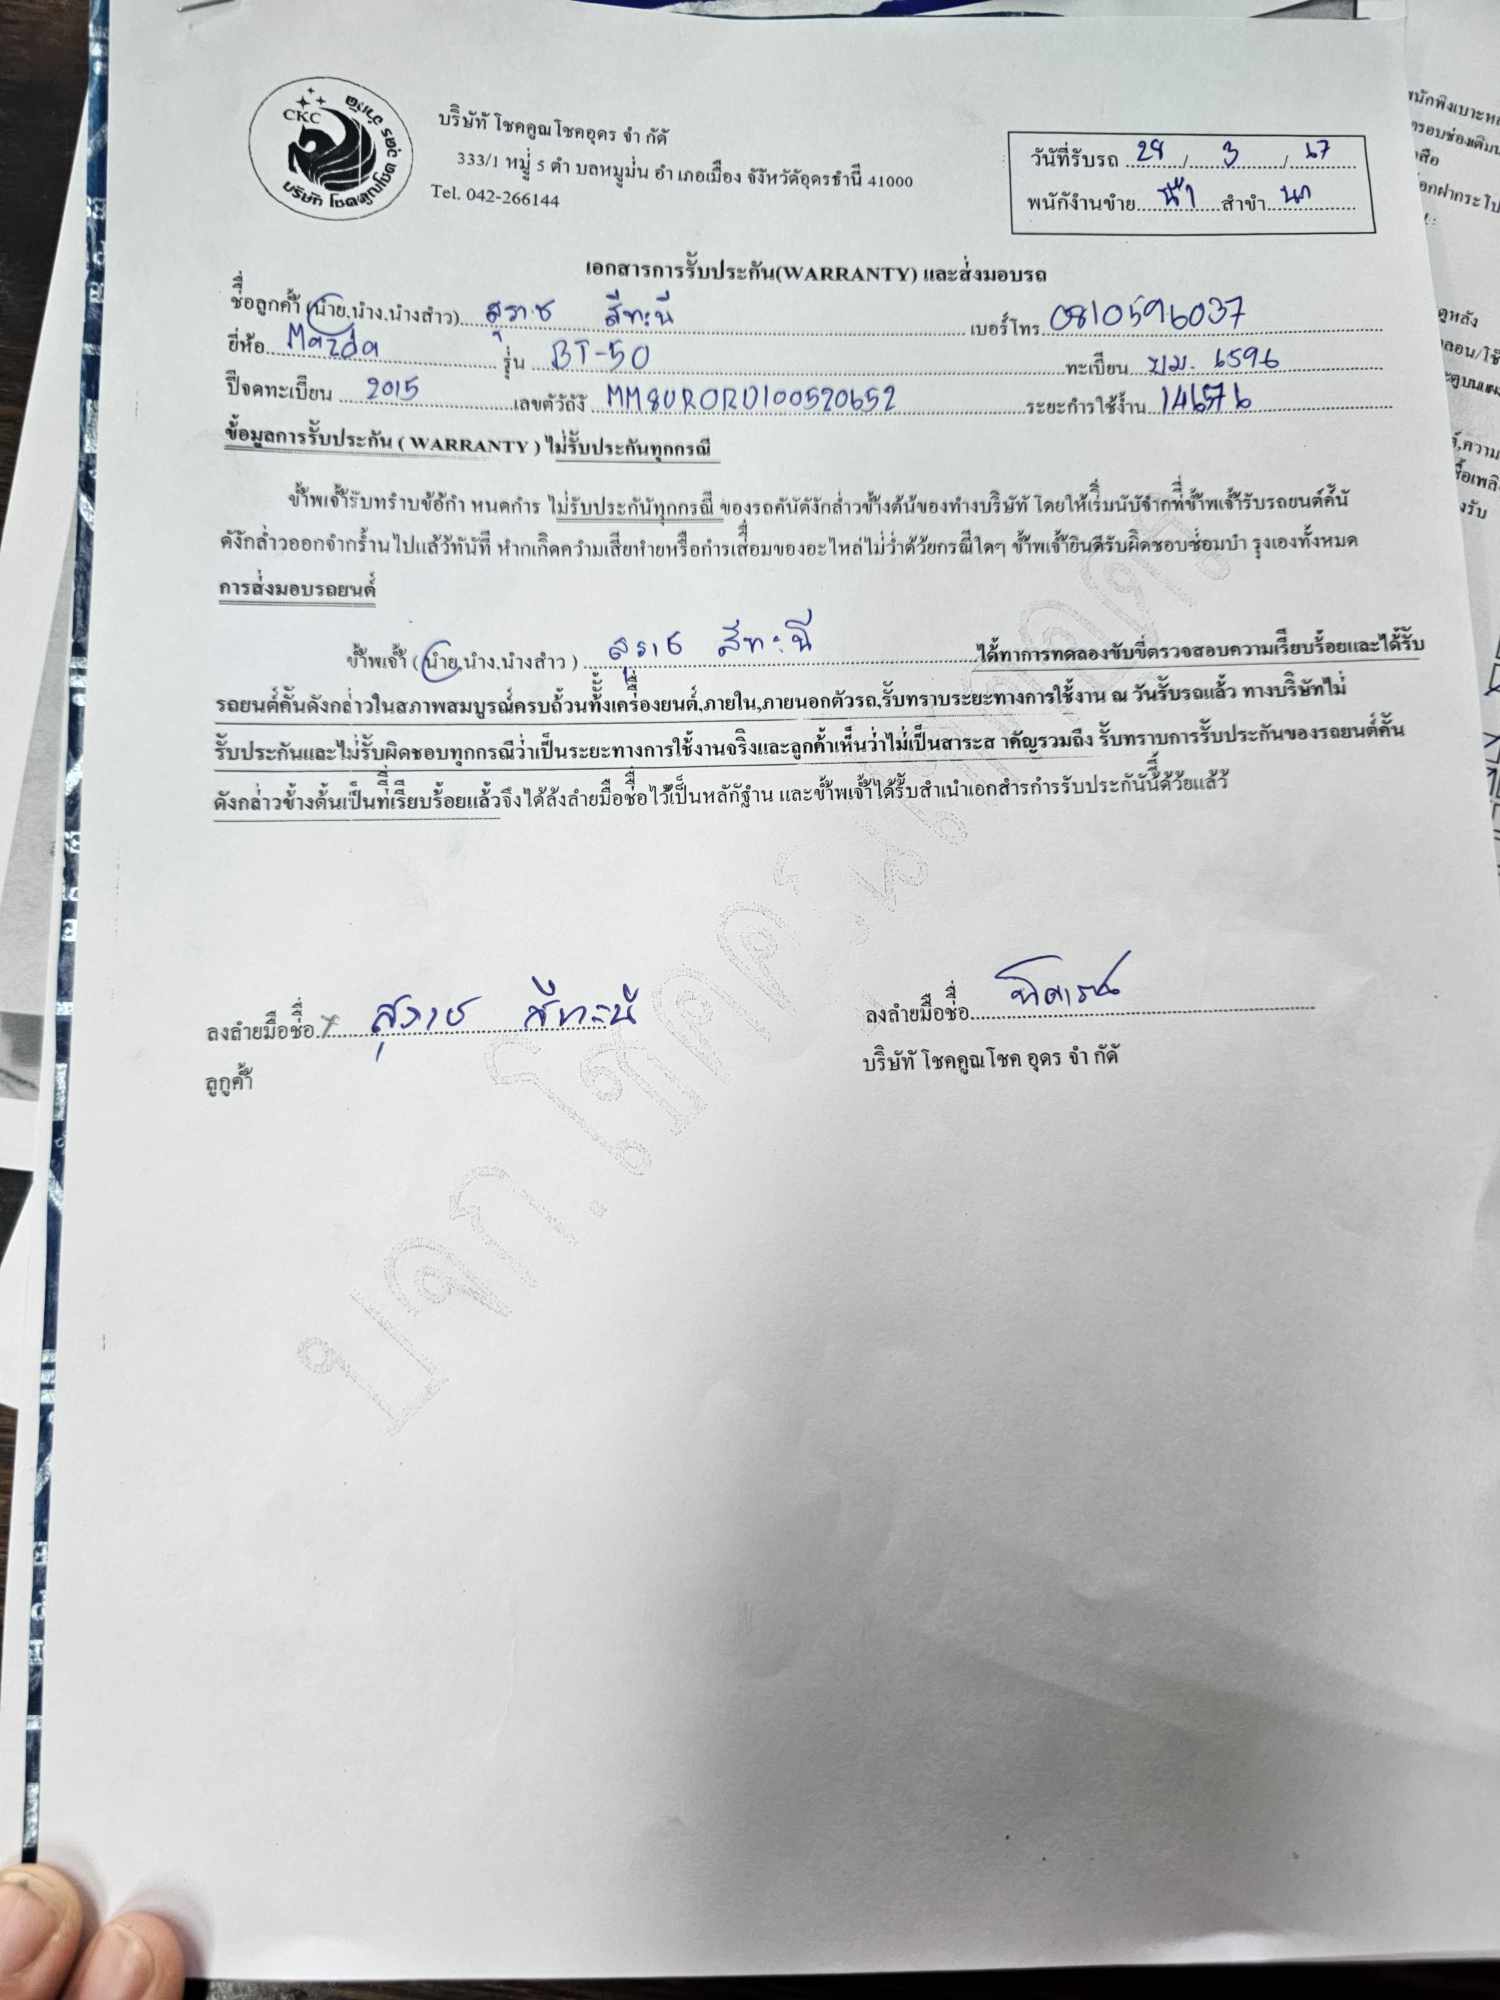 CKC
บริษัท โชคคูณโชค อุดร จำกัด
บริษัท โชคคูณโชคอุดร จำ กัด
333/1 หมู่ 5 ตำ บลหมูม่น อำ เภอเมือง จังหวัดอุดรธานี 41000
Tel. 042-266144
วันที่รับรถ 28 / 3 / 67
พนักงานขาย น้ำ สาขา นา
เอกสารการรับประกัน(WARRANTY) และส่งมอบรถ
ชื่อลูกค้า (นาย.นาง.นางสาว) สุราช สีทะนี เบอร์โทร 0810596037
ยี่ห้อ Mazda รุ่น BT-50 ทะเบียน ฆม. 6596
ปีจดทะเบียน 2015 เลขตัวถัง MM8UR0RD100520652 ระยะการใช้งาน
ข้อมูลการรับประกัน ( WARRANTY ) ไม่รับประกันทุกกรณี
ข้าพเจ้ารับทราบข้อกำ หนดการ ไม่รับประกันทุกกรณี ของรถคันดังกล่าวข้างต้นของทางบริษัท โดยให้เริ่มนับจากที่ข้าพเจ้ารับรถยนต์คัน
ดังกล่าวออกจากร้านไปแล้วทันที หากเกิดความเสียหายหรือการเสื่อมของอะไหล่ไม่ว่าด้วยกรณีใดๆ ข้าพเจ้ายินดีรับผิดชอบซ่อมบำ รุงเองทั้งหมด
การส่งมอบรถยนต์
ข้าพเจ้า (นาย.นาง.นางสาว ) สุราช สีทะนี ได้ทาการทดลองขับขี่ตรวจสอบความเรียบร้อยและได้รับ
รถยนต์คันดังกล่าวในสภาพสมบูรณ์ครบถ้วนทั้งเครื่องยนต์,ภายใน,ภายนอกตัวรถ,รับทราบระยะทางการใช้งาน ณ วันรับรถแล้ว ทางบริษัทไม่
รับประกันและไม่รับผิดชอบทุกกรณีว่าเป็นระยะทางการใช้งานจริงและลูกค้าเห็นว่าไม่เป็นสาระส าคัญรวมถึง รับทราบการรับประกันของรถยนต์คัน
ดังกล่าวข้างต้นเป็นที่เรียบร้อยแล้วจึงได้ลงลายมือชื่อไว้เป็นหลักฐาน และข้าพเจ้าได้รับสำเนาเอกสารการรับประกันนี้ด้วยแล้ว
ลงลายมือชื่อ สุราช สีทะนี
ลูกค้า
ลงลายมือชื่อ
บริษัท โชคคูณโชค อุดร จำ กัด